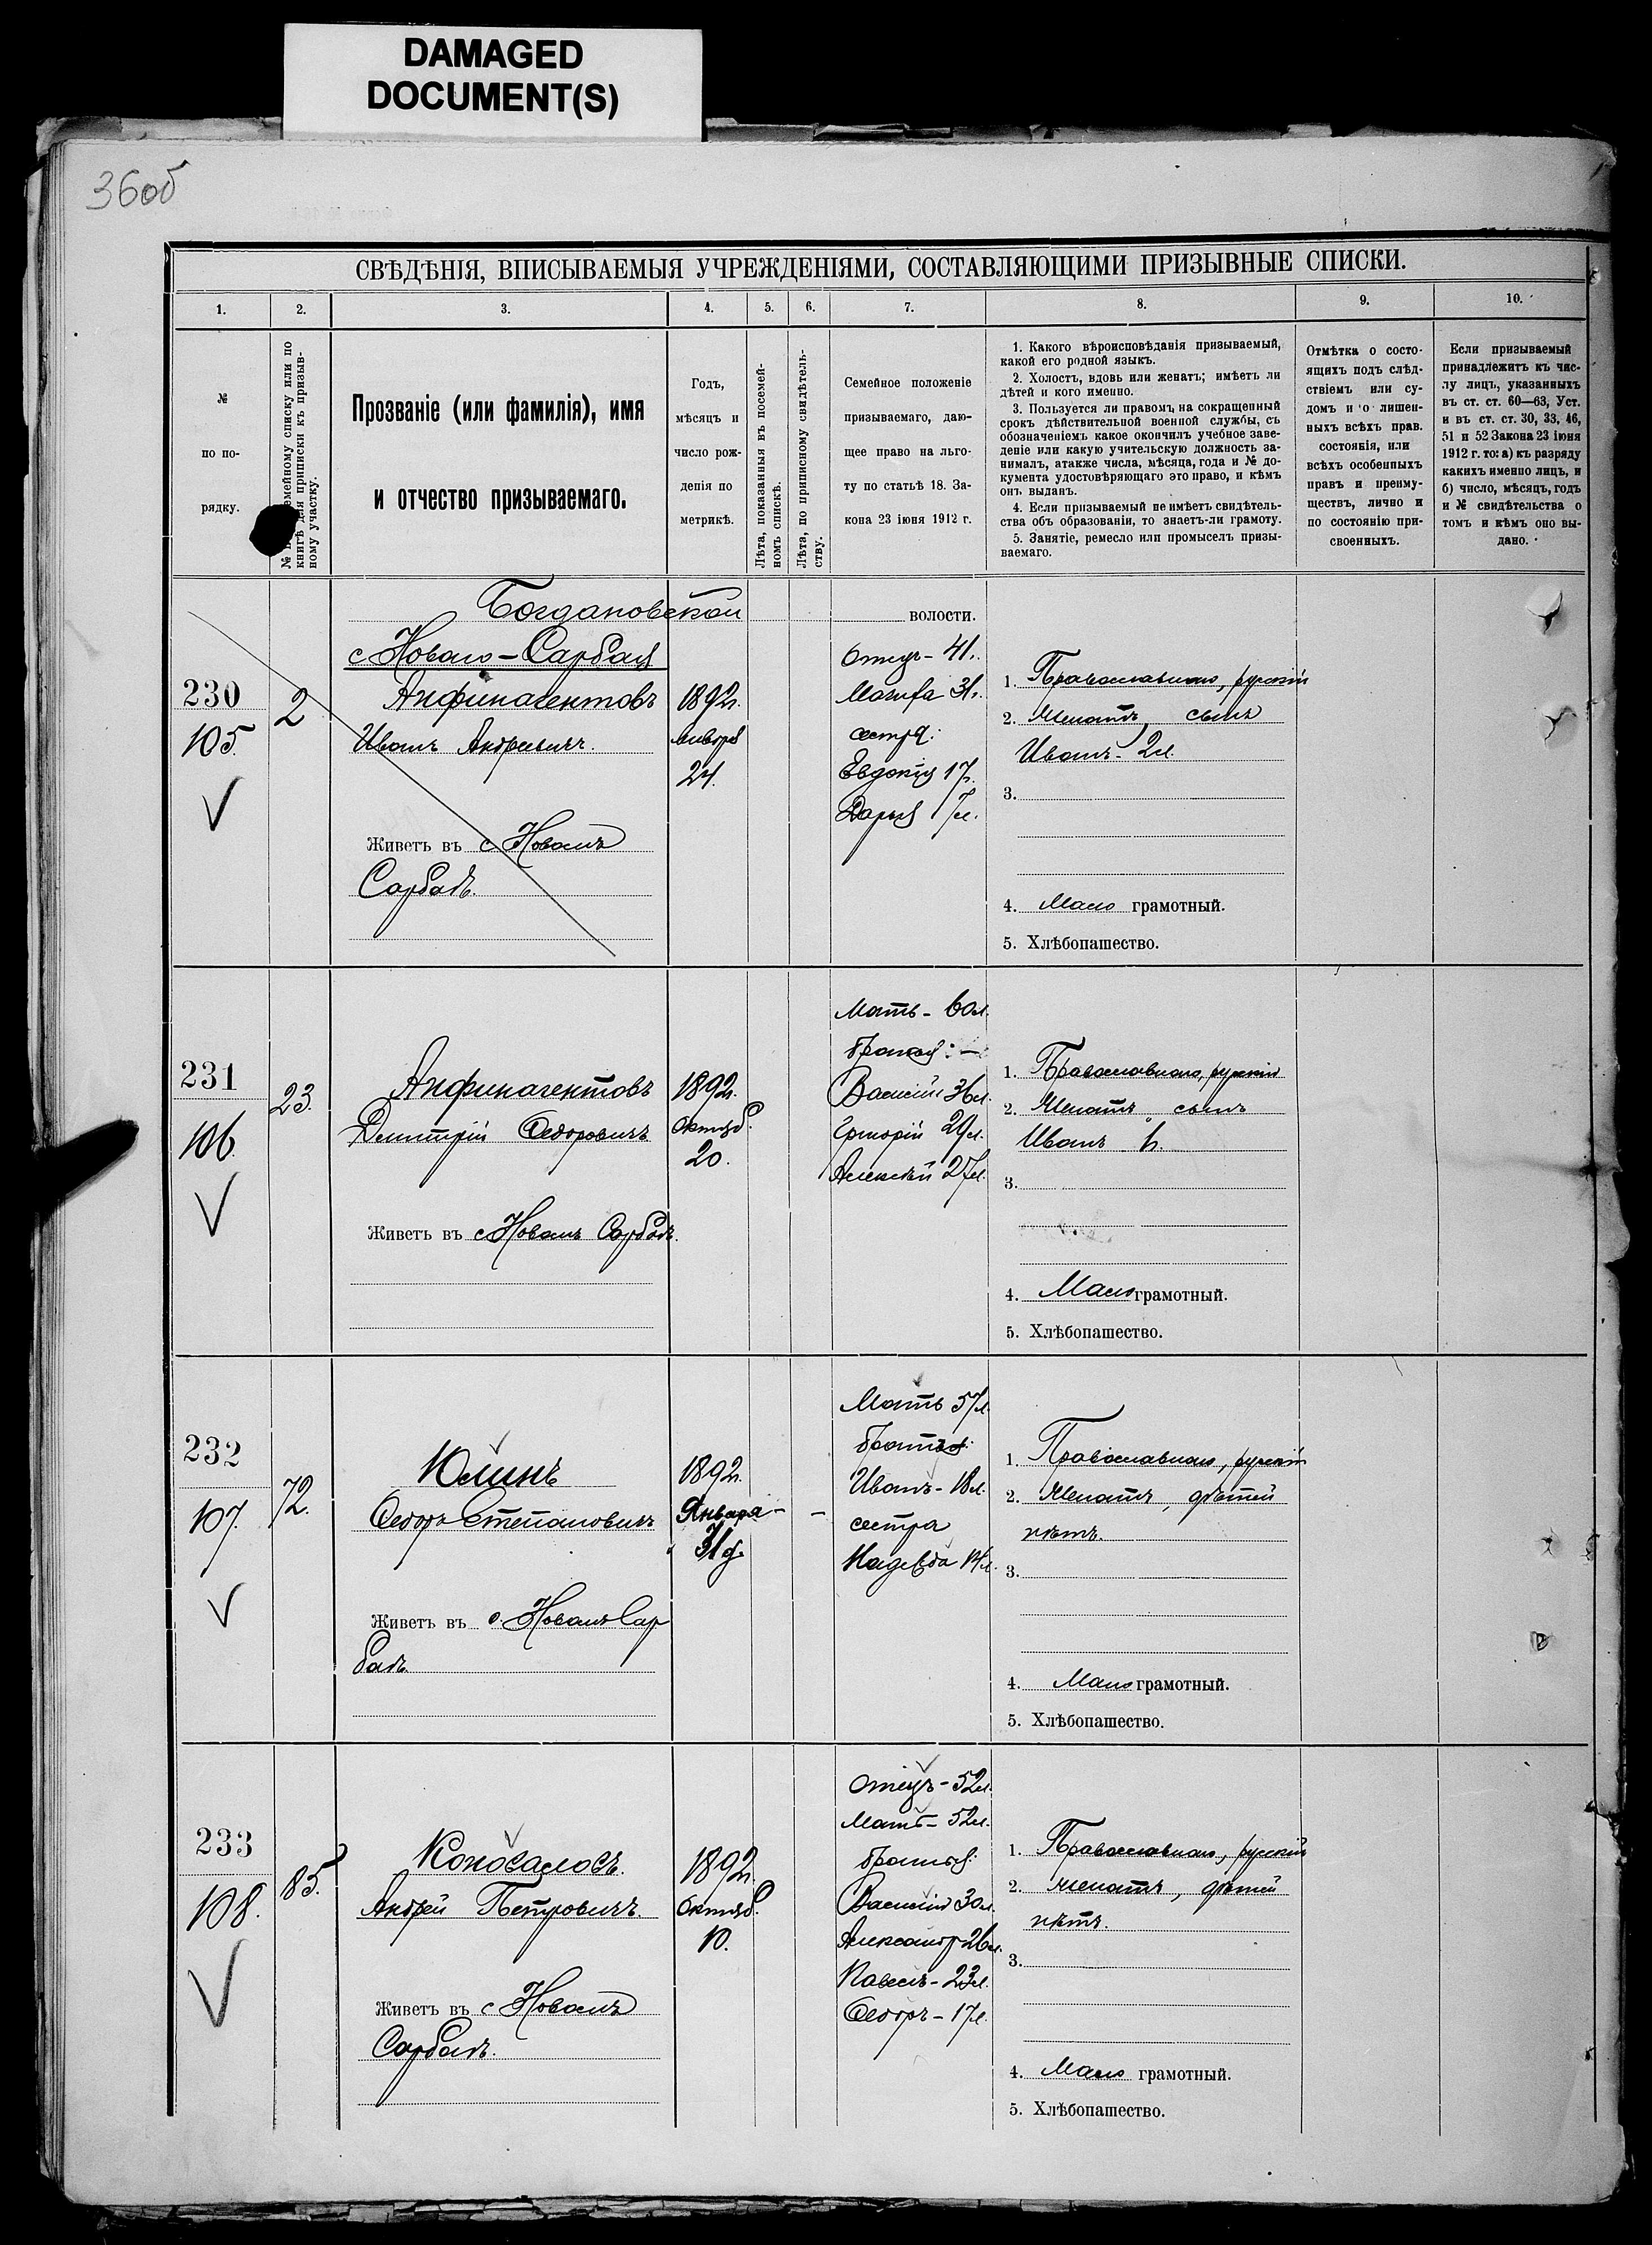 DAMAGED
DOCUMENT(S)
36об
СВѢДѢНІЯ, ВПИСЫВАЕМЫЯ УЧРЕЖДЕНІЯМИ, СОСТАВЛЯЮЩИМИ ПРИЗЫВНЫЕ СПИСКИ.
1. 2. 3. 4. 5. 6. 7. 8. 9. 10.
№
по по-
рядку.
№ семейному списку или по
книгѣ для приписки къ призыв-
ному участку.
Прозваніе (или фамилія), имя
и отчество призываемаго.
Годъ,
мѣсяцъ и
число рож-
денія по
метрикѣ.
Лѣта, показанныя въ посемей-
номъ спискѣ.
Лѣта, по приписному свидѣтель-
ству.
Семейное положеніе
призываемаго, даю-
щее право на льго-
ту по статьѣ 18. За-
кона 23 іюня 1912 г.
1. Какого вѣроисповѣданія призываемый,
какой его родной языкъ.
2. Холостъ, вдовъ или женатъ; имѣетъ ли
дѣтей и кого именно.
3. Пользуется ли правомъ, на сокращенный
срокъ дѣйствительной военной службы, съ
обозначеніемъ какое окончилъ учебное заве-
деніе или какую учительскую должность за-
нималъ, атакже числа, мѣсяца, года и № до-
кумента удостовѣряющаго это право, и кѣмъ
онъ выданъ.
4. Если призываемый не имѣетъ свидѣтель-
ства объ образованіи, то знаетъ-ли грамоту.
5. Занятіе, ремесло или промыселъ призы-
ваемаго.
Отмѣтка о состо-
ящихъ подъ слѣд-
ствіемъ или су-
домъ и о лишен-
ныхъ всѣхъ прав.
состоянія, или
всѣхъ особенныхъ
правъ и преиму-
ществъ, лично и
по состоянію при-
своенныхъ.
Если призываемый
принадлежитъ къ чис-
лу лицъ, указанныхъ
въ ст. ст. 60—63, Уст.
и въ ст. ст. 30, 33, 46,
51 и 52 Закона 23 іюня
1912 г. то: а) къ разряду
какихъ именно лицъ, и
б) число, мѣсяцъ, годъ
и № свидѣтельства о
томъ и кѣмъ оно вы-
дано.
Богдановской волости.
с Новаго-Сарбая
230
105.
2
Анфиногентовъ
Иванъ Андреевичъ.
Живетъ въ с Новомъ
Сарбаѣ.
1892г.
января
24.
Отецъ - 41г.
сестра:
Евдокія 17л.
Дарья 7л.
1. Православнаго, русскій
2. Женатъ, сынъ
Иванъ - 2л.
3.
4. Мало грамотный.
5. Хлѣбопашество.
231
106.
23.
Анфиногентовъ
Дмитрій Ѳедоровичъ
Живетъ въ с Новомъ Сарбаѣ.
1892г.
Октяб.
20.
Мать - 60л.
братья: -
Василій 36л.
Григорій 29л.
Алексѣй 27л.
1. Православнаго, русскій
2. Женатъ сынъ
Иванъ 1г.
3.
4. Мало грамотный.
5. Хлѣбопашество.
232
107.
72.
Юлинъ
Ѳедоръ Степановичъ
Живетъ въ с. Новомъ Сар
баѣ.
1892г.
Января -
31 д.
Мать 57л.
братья:
Иванъ - 18л.
сестра
Надежда 14л.
1. Православнаго, русскій
2. Женатъ, дѣтей
нѣтъ.
3.
4. Мало грамотный.
5. Хлѣбопашество.
233
108.
85.
Коноваловъ.
Андрей Петровичъ.
Живетъ въ с Новомъ
Сарбаѣ.
1892г.
Октяб.
10.
Отецъ - 52л.
Мать - 52л.
братья:
Василій 30л.
Александр 26л.
Павелъ - 23л.
Ѳедоръ - 17л.
1. Православнаго, русскій
2. женатъ, дѣтей
нѣтъ.
3.
4. Мало грамотный.
5. Хлѣбопашество.